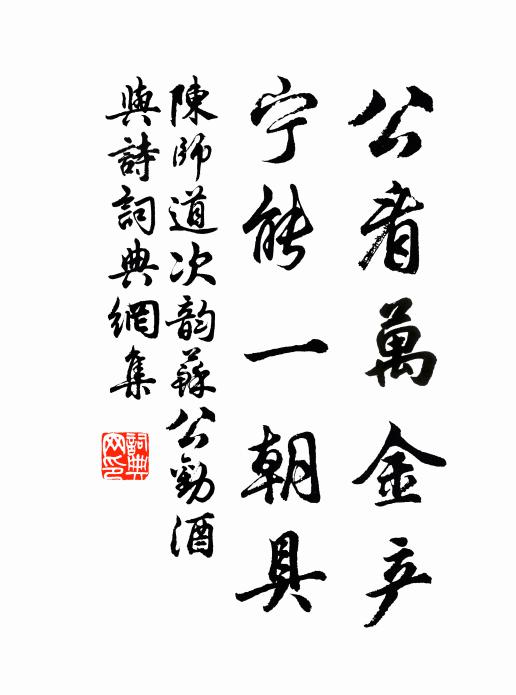 公看萬金产
宁能一朝具
陳師道次韵蘇公勸酒
與詩詞典網集
詞典网印